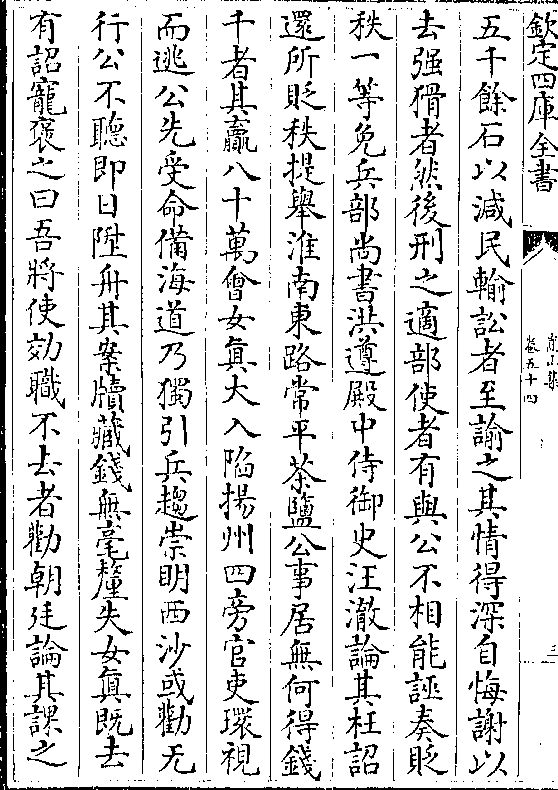 欽定四庫全書
南山集
卷五十四
三
五千餘石以減民輸訟者至諭之其情得深自悔謝以
去强猾者然後刑之適部使者有與公不相能誣奏貶
秩一等免兵部尚書洪遵殿中侍御史汪澈論其枉詔
還所貶秩提舉淮南東路常平茶鹽公事居無何得錢
千者其贏八十萬會女真大入陷揚州四旁官吏環視
而逃公先受命備海道乃獨引兵趨崇明西沙或勸无
行公不聽即日陞舟其案牘藏錢無毫釐失女真既去
有詔寵褒之曰吾將使効職不去者勸朝廷論其課之